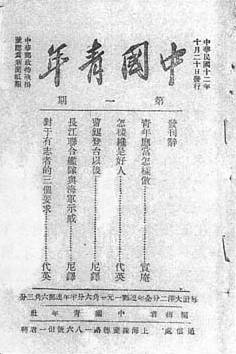 中華民國十二年
十月二十日發行
中國青年
中華郵政特准掛
號認爲新聞紙類
第一期
發刊辭
青年應當怎樣做………實庵
怎樣纔是好人………代英
曹錕登台以後………尼鐸
長江聯合艦隊與海軍示威………尼鐸
對于有志者的三個要求………代英
每冊大洋二分全年連郵一元一角六分半年連郵六角三分
編輯者 中國青年社
通信處，上海辣斐德路一八六號但一君轉